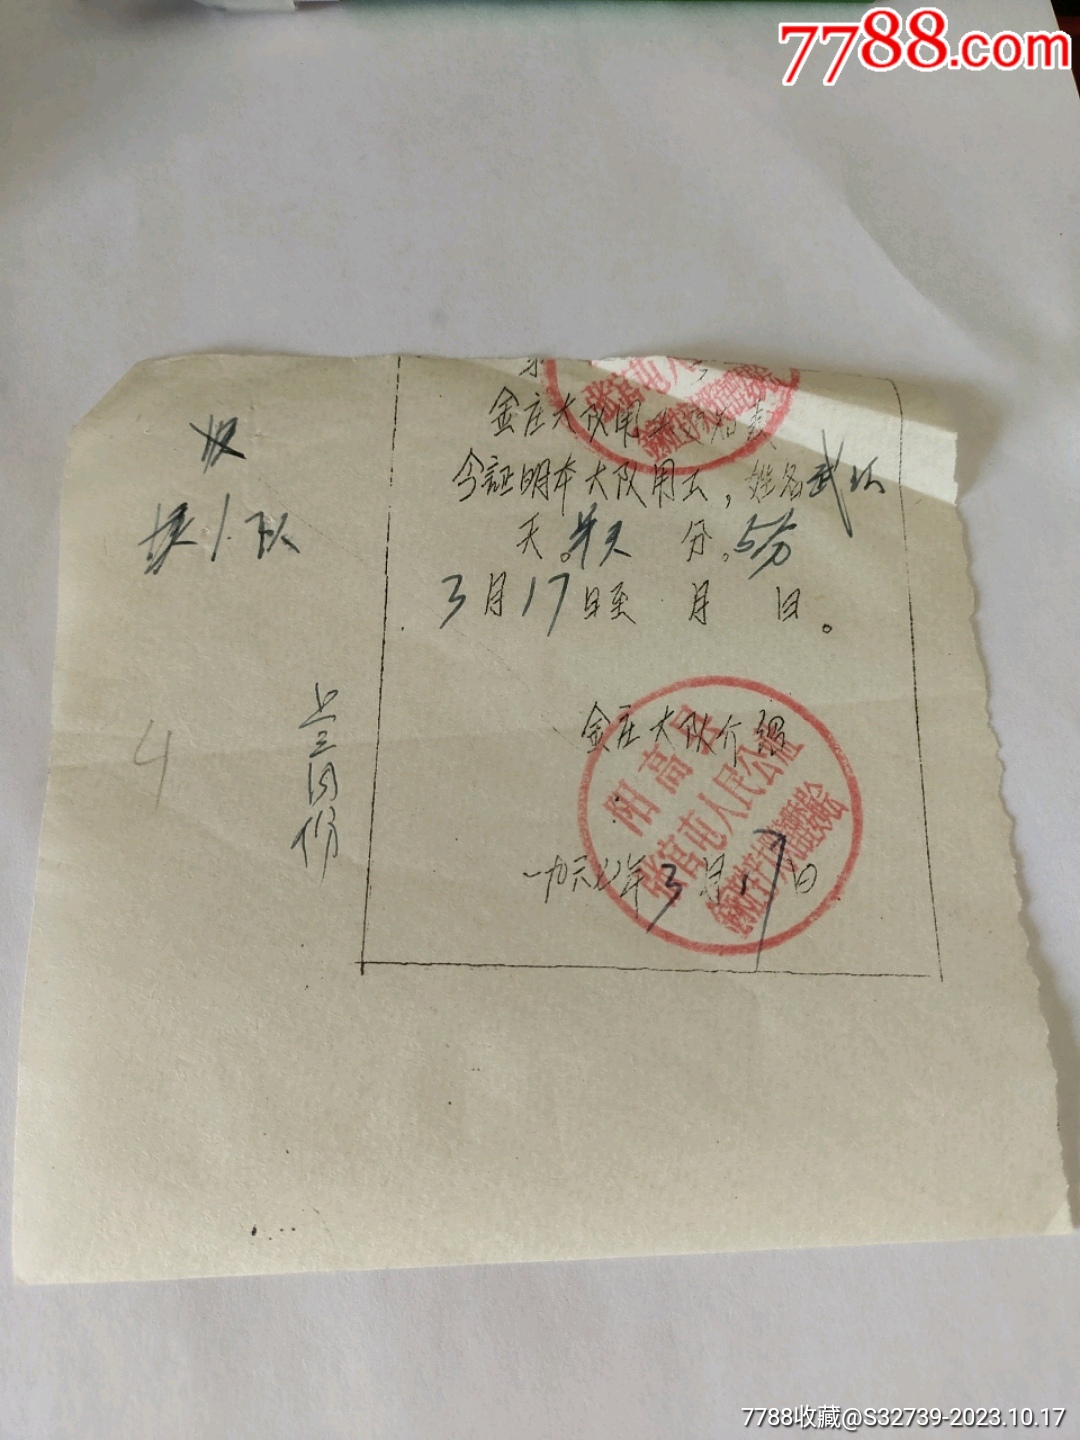 7788.com
张官屯人
金庄大队用
今証明本大队用工，姓名武
天。半天 分。5分
3月17日至 月 日。
1队
上三月份
4
金庄大队介绍
阳高县
张官屯人民公社
一九六七年3月17日
7788收藏@S32739-2023.10.17